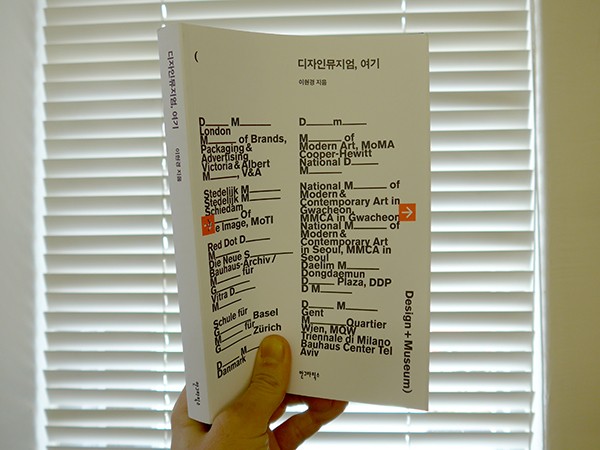 디자인뮤지엄, 여기
이현경 지음
(
디자인뮤지엄, 여기
이현경 지음
D____ M______
London
M______ of Brands,
Packaging &
Advertising
Victoria & Albert
M______, V&A
Stedelijk M______
Stedelijk M______
Schiedam
Of
e Image, MoTI
Red Dot D____
M______
Die Neue S______
Bauhaus-Archiv /
M______ für
G____
Vitra D____
M____
Schule für
G____ Basel
M____ für
G____ Zürich
D____ M____
Danmark
D____m____
M______ of
Modern Art, MoMA
Cooper-Hewitt
National D____
M______
National M____ of
Modern &
Contemporary Art in
Gwacheon,
MMCA in Gwacheon
National M____ of
Modern &
Contemporary Art
in Seoul, MMCA in
Seoul
Daelim M____
Dongdaemun
D____ Plaza, DDP
D M____
D____ M____
Gent
M______ Quartier
Wien, MQW
Triennale di Milano
Bauhaus Center Tel
Aviv
→
Design + Museum)